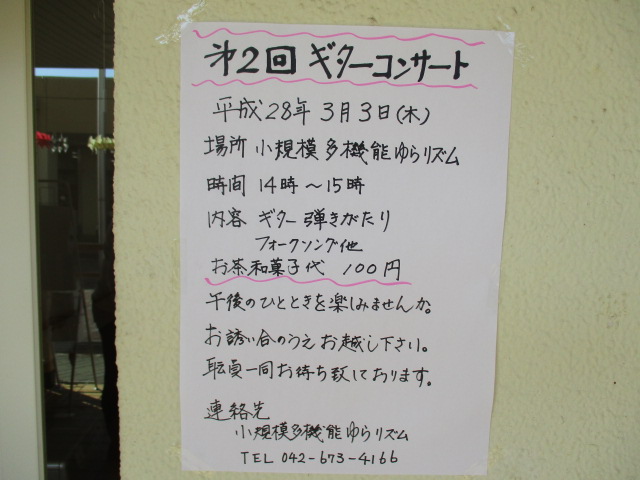 第2回 ギターコンサート
平成28年 3月3日(木)
場所 小規模多機能ゆらリズム
時間 14時～15時
内容 ギター 弾きがたり
フォークソング他
お茶和菓子代 100円
午後のひとときを楽しみませんか。
お誘い合のうえお越し下さい。
職員一同お待ち致しております。
連絡先
小規模多機能ゆらリズム
TEL 042-673-4166